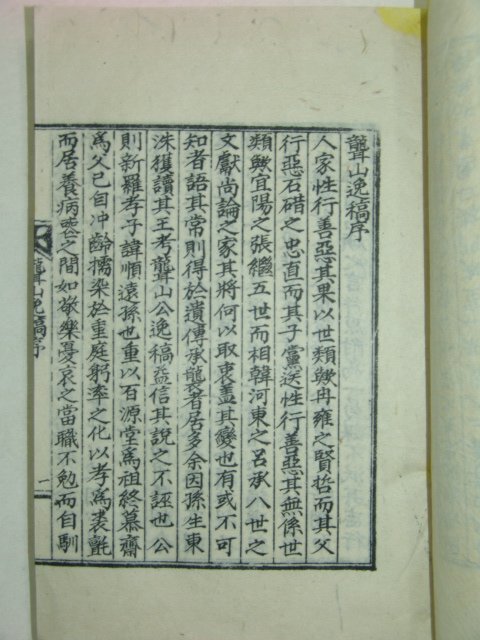 聾山逸稿序
人家性行善惡其果以世類歟冉雍之賢哲而其父
行惡石碏之忠直而其子黨送性行善惡其無係世
類歟宜陽之張繼五世而相韓河東之呂承八世之
文獻尚論之家其將何以取衷盖其變也有或不可
知者語其常則得於遺傳承襲者居多余因孫生東
洙獲讀其王考聾山公逸稿益信其說之不誣也公
則新羅孝子諱順遠孫也重以百源堂爲祖終慕齋
爲父已自冲齡擩染於重庭躬率之化以孝爲裘氈
而居養病喪之間如敬樂憂哀之當職不勉而自馴
聾山逸稿序 一